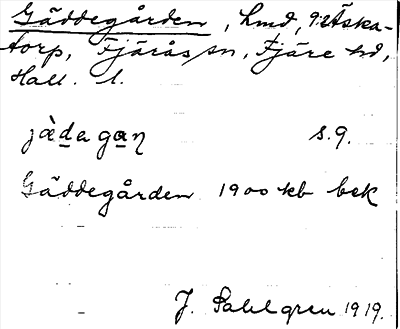 Gäddegården, hmd, 9:2 Äska-
torp, Fjärås sn, Fjäre hd,
Hall. l.
jæ̀dagaɳ s.9.
Gäddegården 1900 kb bek
J. Sahlgren 1919.